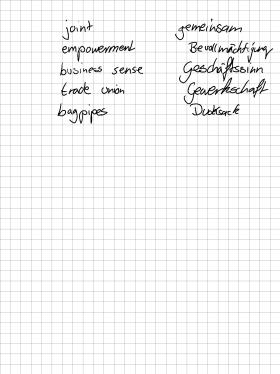 joint gemeinsam
empowerment Bevollmächtigung
business sense Geschäftssinn
trade union Gewerkschaft
bagpipes Dudelsack